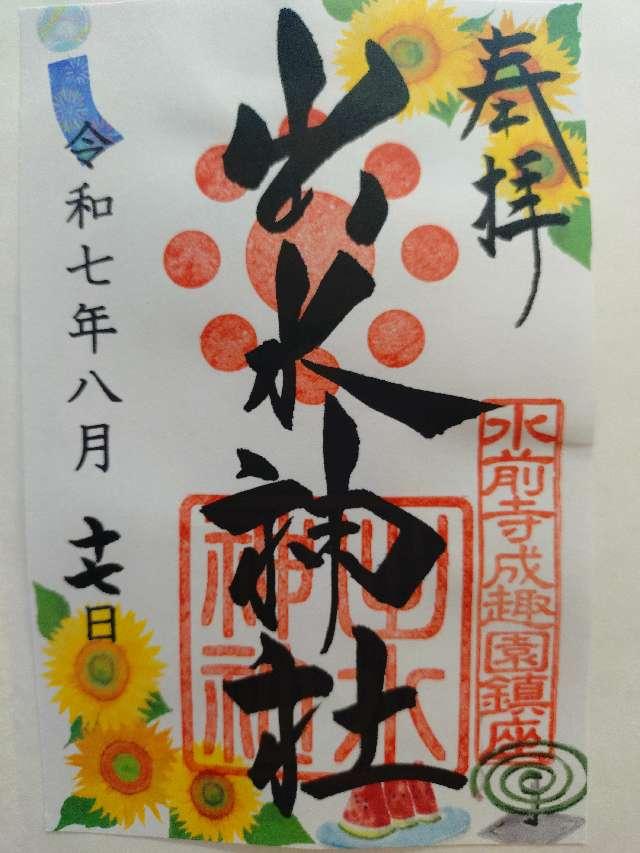 奉拝
水前寺成趣園鎮座
出水神社
出水神社
令和七年八月十七日